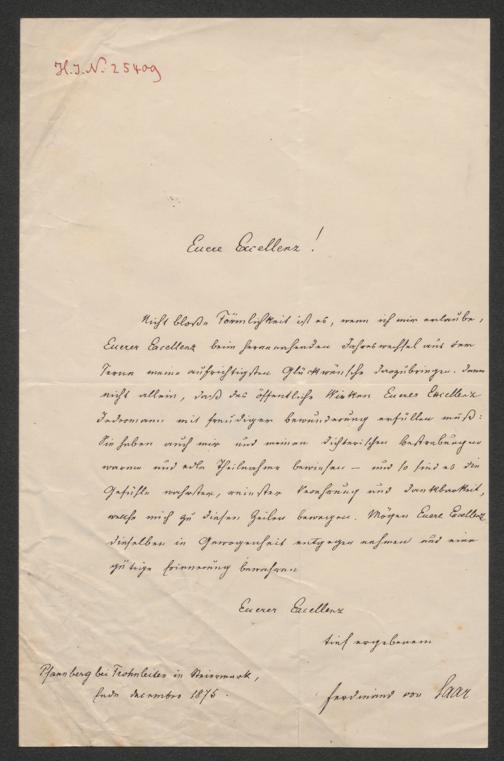 H.I.N. 25409
Euere Excellenz!
Nicht bloße Förmlichkeit ist es, wenn ich mir erlaube,
Euerer Excellenz beim herannahenden Jahreswechsel aus der
Ferne meine aufrichtigsten Glückwünsche darzubringen. Denn
nicht allein, daß das öffentliche Wirken Euerer Excellenz
Jedermann mit freudiger Bewunderung erfüllen muß:
Sie haben auch mir und meinen dichterischen Bestrebungen
warme und edle Theilnahme bewiesen – und so sind es die
Gefühle wahrster, reinster Verehrung und Dankbarkeit,
welche mich zu diesen Zeilen bewegen. Mögen Euere Excellenz
dieselben in Gewogenheit entgegen nehmen und eine
gütige Erinnerung bewahren
Euerer Excellenz
tief ergebenem
Pfannberg bei Frohnleiten in Steiermark,
Ende December 1875.
Ferdinand von Saar